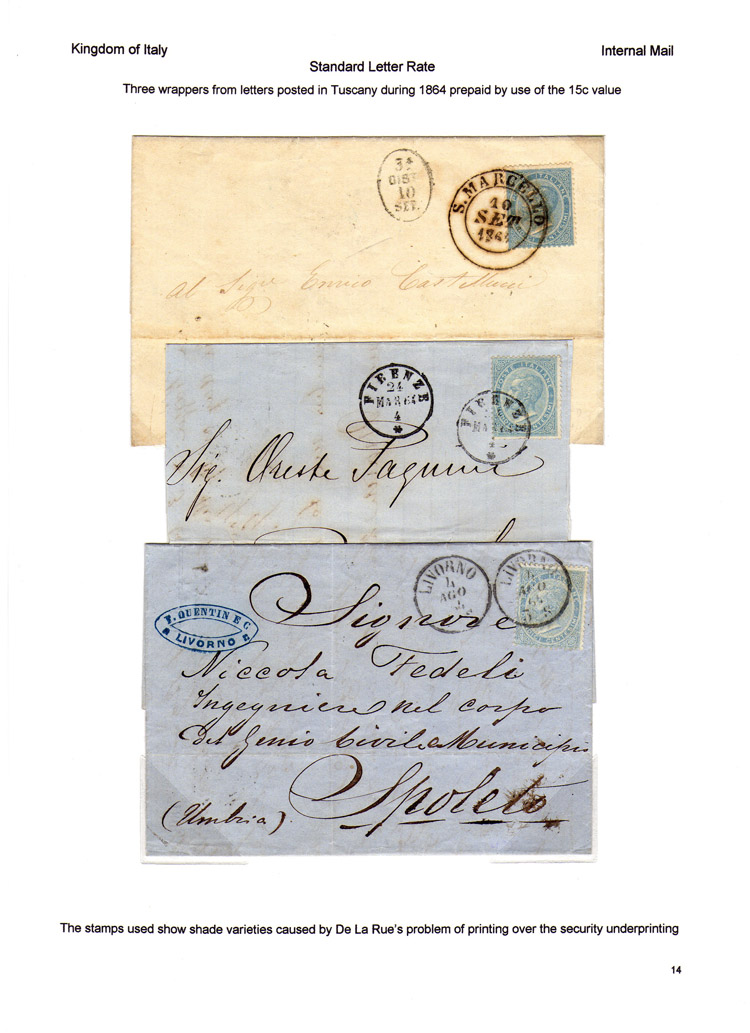 Kingdom of Italy
Internal Mail
Standard Letter Rate
Three wrappers from letters posted in Tuscany during 1864 prepaid by use of the 15c value
10
SET.
S. MARCELLO
10
SET
186
Al Sigr Enrico Castellucci
FIRENZE
24
MAR 64
4
FIRENZE
MAR 64
4
POSTE ITALIANE
Sig. Oreste
LIVORNO
4
AGO
LIVORNO
4
AGO
F. QUENTIN E C.
LIVORNO
Signore
Niccola Fedeli
Ingegniere nel corpo
del Genio Civile Municipio
Spoleto
(Umbria)
The stamps used show shade varieties caused by De La Rue's problem of printing over the security underprinting
14